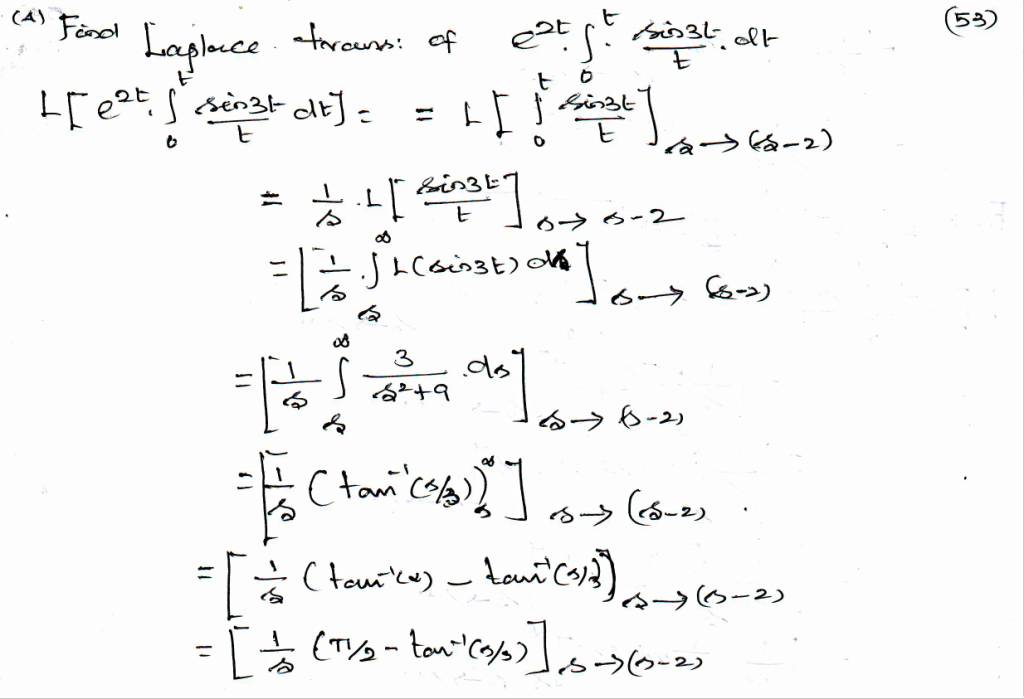 (4) Find Laplace trans: of e^{2t}. ∫_0^t sin3t/t . dt (53)
L[e^{2t}. ∫_0^t sin3t/t dt] = = L[∫_0^t sin3t/t]_{s→(s-2)}
= 1/s . L[sin3t/t]_{s→s-2}
= [1/s . ∫_s^∞ L(sin3t) ds]_{s→(s-2)}
= [1/s ∫_s^∞ 3/(s²+9) .ds]_{s→(s-2)}
= [1/s (tan⁻¹(s/3))_s^∞]_{s→(s-2)} .
= [1/s (tan⁻¹(∞) - tan⁻¹(s/3))]_{s→(s-2)}
= [1/s (π/2 - tan⁻¹(s/3)]_{s→(s-2)}